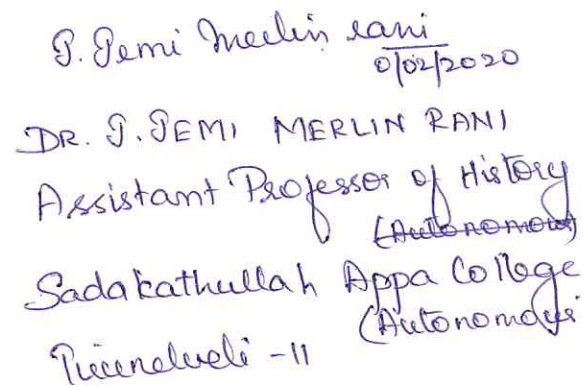 J. Jemi Merlin rani
0/02/2020
DR. J. JEMI MERLIN RANI
Assistant Professor of History
(Autonomous)
Sadakathullah Appa College
(Autonomous
Tirunelveli - 11